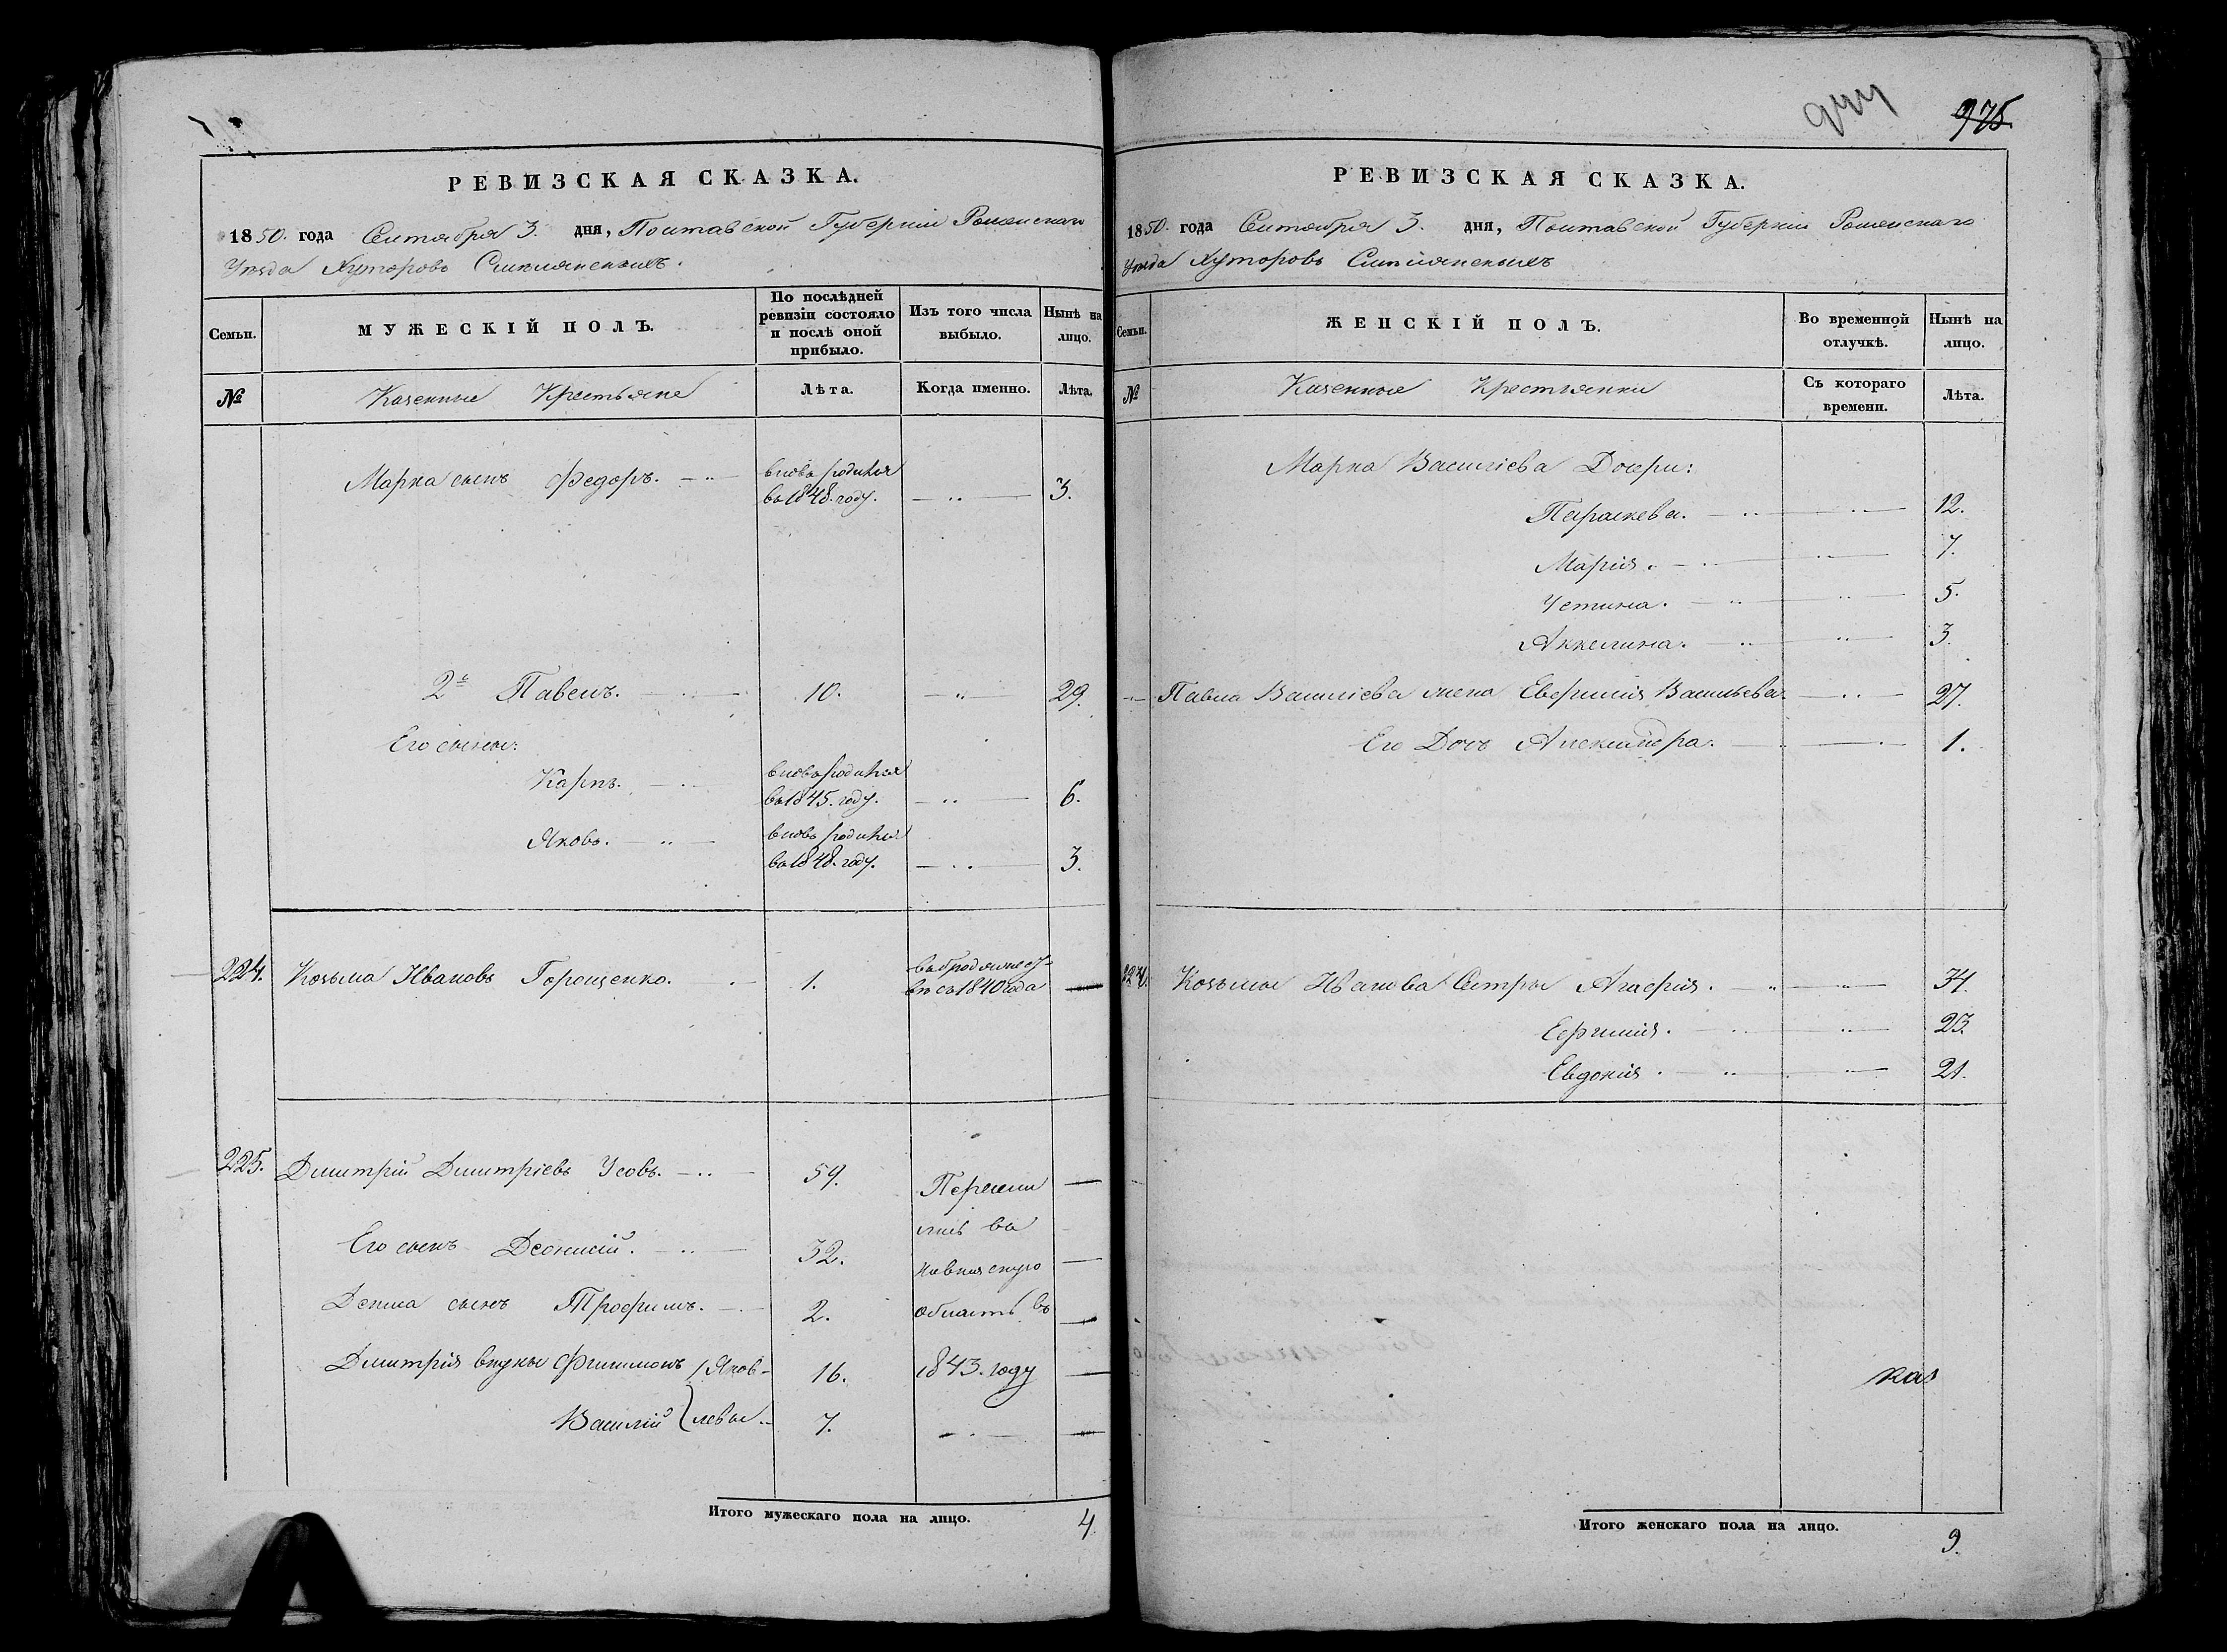 975.
РЕВИЗСКАЯ СКАЗКА.
1850. года Сентября 3. дня, Полтавской Губерніи Роменскаго
Уѣзда Хуторовъ Смѣлянскихъ.
Семьи.
МУЖЕСКІЙ ПОЛЪ.
По послѣдней ревизіи состояло и послѣ оной прибыло.
Изъ того числа выбыло.
Нынѣ на лицо.
№
Казенные Крестьяне
Лѣта.
Когда именно.
Лѣта.
Марка сынъ Федоръ. вновь родился
въ 1848. году. 3.
2й Павелъ. 10. 29.
Его сыны:
Карпъ. вновь родился
въ 1845. году. 6.
Яковъ. вновь родился
въ 1848. году. 3.
224. Козьма Ивановъ Горощенко. 1.
въ бродяжест-
вѣ съ 1840 года
225. Дмитрій Дмитріевъ Усовъ. 59. Пересели
лись въ
Его сынъ Деонисій. 32. Кавказскую
Дениса сынъ Трофимъ. 2. область въ
Дмитрія внуки Филимонъ Яков- 16. 1843. году
Василій левы. 7.
Итого мужескаго пола на лицо. 4
РЕВИЗСКАЯ СКАЗКА.
1850. года Сентября 3. дня, Полтавской Губерніи Роменскаго
Уѣзда Хуторовъ Смѣлянскихъ
Семьи.
ЖЕНСКІЙ ПОЛЪ.
Во временной отлучкѣ.
Нынѣ на лицо.
№
Казенные Крестьянки
Съ котораго времени.
Лѣта.
Марка Василіева Дочери:
Параскева. 12.
Марія. 7.
Устина. 5.
Аккелина. 3.
Павла Василіева жена Евфимія Васильева. 27.
Его Дочь Александра. 1.
224. Козьмы Иванова Сестры Агафія. 34.
Евфимія. 23.
Евдокія. 21.
каз
Итого женскаго пола на лицо. 9.